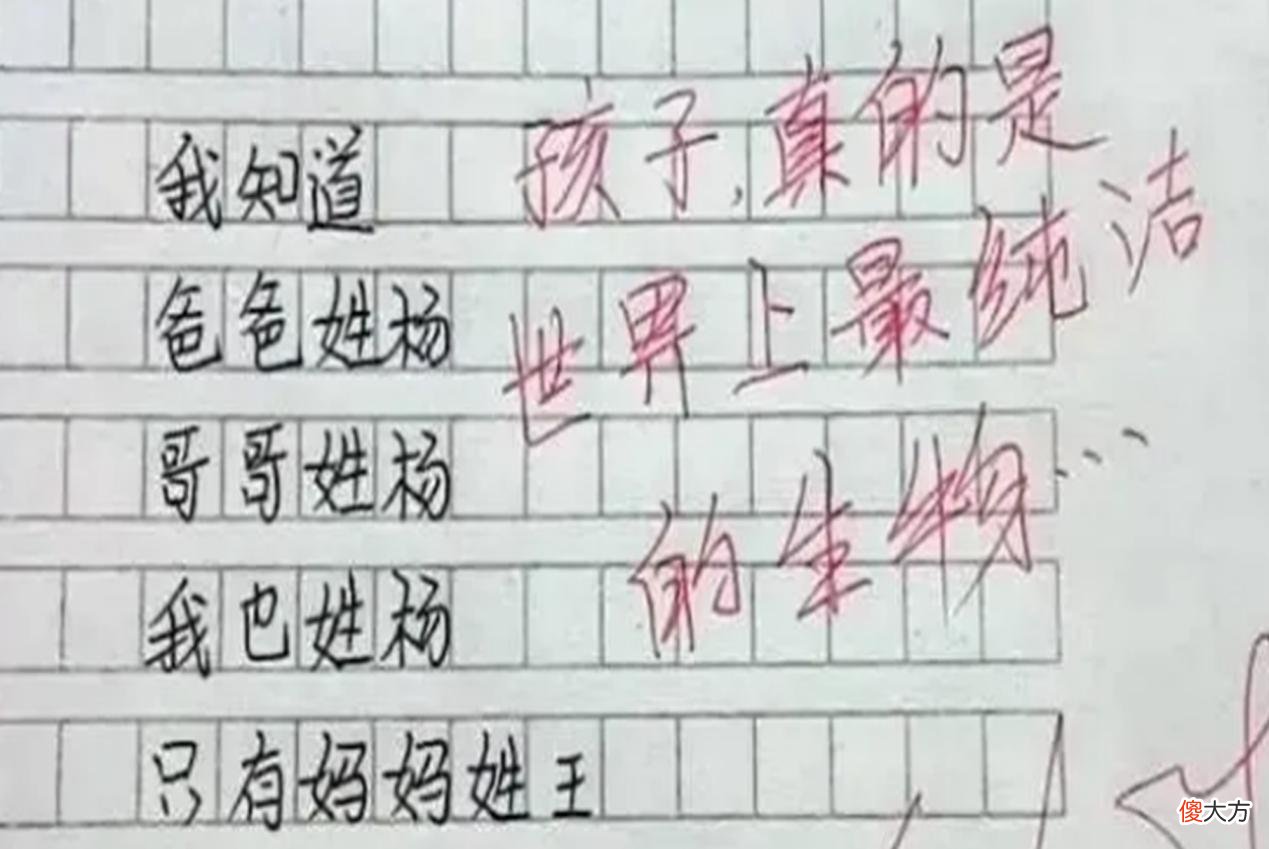 我知道
爸爸姓杨
哥哥姓杨
我也姓杨
只有妈妈姓王
孩子,真的是
世界上最纯洁
的生物…
傻大方